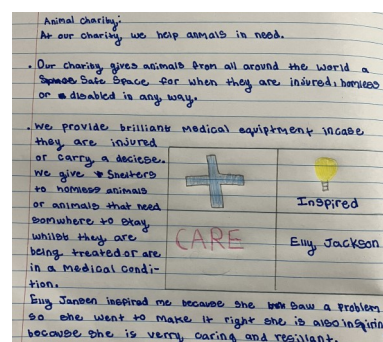 Animal charity:
At our charity, we help anmals in need.
. Our charity gives animals from all around the world a
Safe Space for when they are injured, homless
or disabled in any way.
. We provide brilliant medical equiptment incase
they are injured
or carry a deciese.
We give Shelters
to homless animals
or animals that need
somwhere to stay
whilst they are
being treated or are
in a medical condi-
tion.
Inspired
CARE
Elly, Jackson
Elly Jansen inspired me because she saw a problem
so she went to make it right she is also inspirin
because she is verry caring and resiliant.